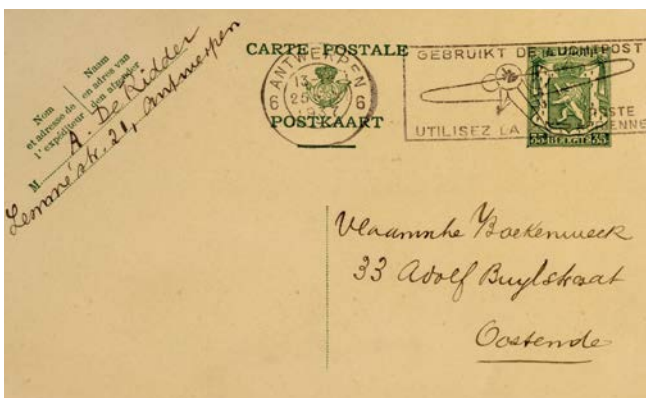 Nom
et adresse de
l'expéditeur
Naam
en adres van
den afzender
M
A. De Ridder
Lemméstr. 21, Antwerpen
CARTE POSTALE
POSTKAART
ANTWERPEN
6 6
13
25
GEBRUIKT DE LUCHTPOST
UTILISEZ LA
35 BELGIE 35
Vlaamsche Boekenweek
33 Adolf Buylstraat
Oostende